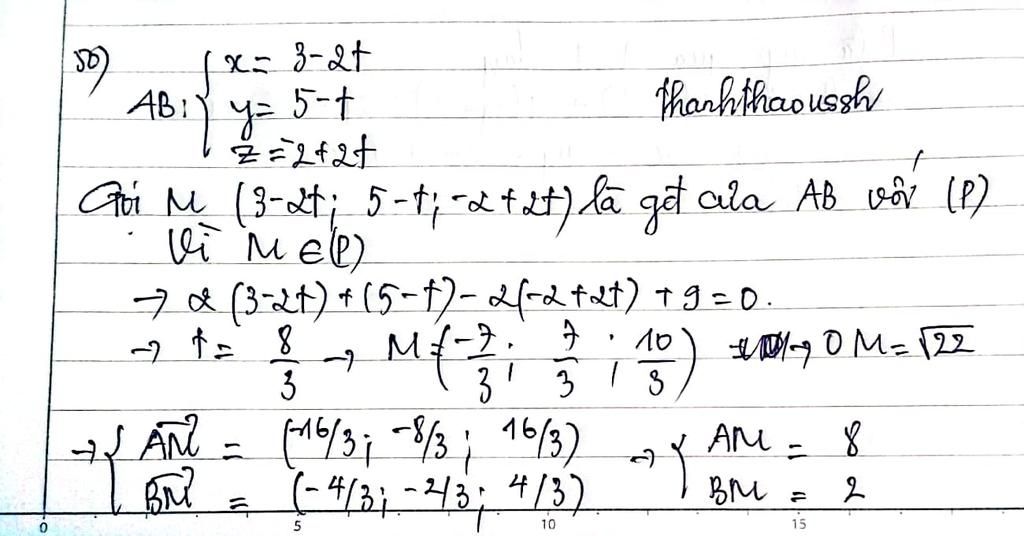 50)
AB: { x = 3-2t
y = 5-t
z = -2+2t
thanhthaoussh
Gọi M (3-2t; 5-t; -2+2t) là gđ của AB với (P)
Vì M ∈ (P)
→ 2(3-2t) + (5-t) - 2(-2+2t) + 9 = 0.
→ t = 8/3 → M = (-7/3; 7/3; 10/3) → OM = √22
→ { AM⃗ = (-16/3; -8/3; 16/3) → { AM = 8
BM⃗ = (-4/3; -2/3; 4/3) BM = 2
0 5 10 15